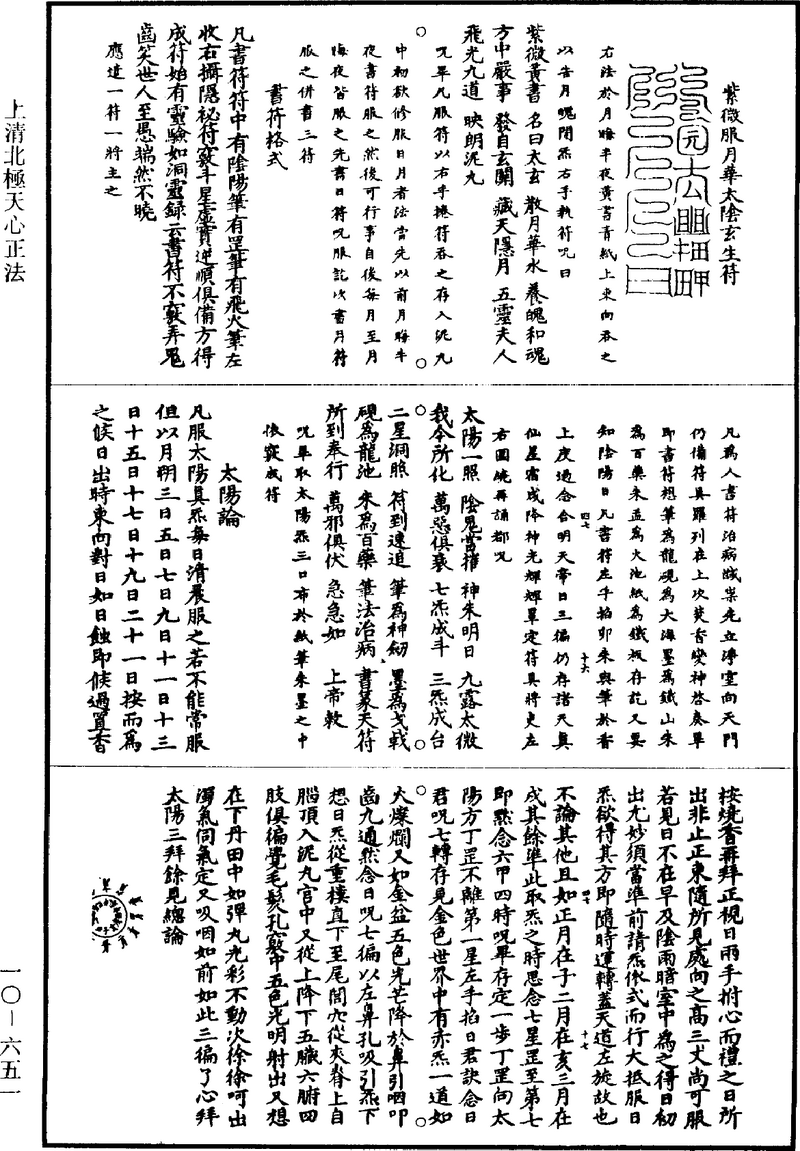 上清北極天心正法
紫微服月華太陰玄生符
右法於月晦半夜黃書青紙上東向吞之
以告月魄閉炁右手執符呪曰
紫微黃書 名曰太玄 散月華水 養魄和魂
方中嚴事 發自玄關 藏天隱月 五靈夫人
飛光九道 映朗泥丸
呪畢凡服符以右手捲符吞之存入泥丸
中初欲修服日月者法當先以前月晦半
夜書符服之然後可行事自後每月至月
晦夜皆服之先書日符呪服訖次書月符
服之併書三符
書符格式
凡書符符中有陰陽筆有罡筆有飛火筆左
收右攝隱祕符竅斗星虛實逆順俱備方得
成符始有靈驗如洞靈録云書符不竅弄鬼
齒笑世人至愚惴然不曉
應達一符一將主之
凡為人書符治病滅祟先立淨室向天門
仍備符具羅列在上次焚香變神啓奏畢
即書符想筆為龍硯為大海墨為鐵山朱
為百藥朱盂為火池紙為鐵板存訖又要
知陰陽日凡書符左手拍卯朱與筆於香
上度過念合明天帝日三徧仍存諸天真
仙星宿咸降神光輝輝單定符具將吏左
右圍繞再誦都呪
太陽一照 陰鬼當摧 神朱明日 九露太微
我今所化 萬惡俱衰 七炁成斗 三炁成台
二星洞照 符到速追 筆為神劒 墨為戈戟
硯為龍池 朱為百藥 筆法治病 書篆天符
所到奉行 萬邪俱伏 急急如 上帝敕
呪畢取太陽炁三口布於紙筆朱墨之中
依竅成符
太陽論
凡服太陽真炁每日清晨服之若不能常服
但以月朔三日五日七日九日十一日十三
日十五日十七日十九日二十一日按而為
之候日出時東向對日如日蝕即候過置香
按燒香再拜正視日兩手拊心而禮之日所
出非止正東隨所見處向之高三丈尚可服
若見日不在早及陰雨暗室中為之得日初
出尤妙須當準前請炁依式而行大抵服日
炁欲得其方即隨時運轉蓋天道左旋故也
不論其他且如正月在子二月在亥三月在
戌其餘準此取炁之時思念七星罡至第七
即默念六甲四時呪畢存定一步丁罡向太
陽方丁罡不離第一星左手拍日君訣念日
君呪七轉存見金色世界中有赤炁一道如
火燦爛又如金盆五色光芒降於鼻引咽叩
齒九通然念日呪七徧以左鼻孔吸引炁下
想日炁從重樓直下至尾閭穴從夾脊上自
腦頂入泥丸宮中又從上降下五臟六腑四
肢俱徧覺毛髮孔竅中五色光明射出又想
在下丹田中如彈丸光彩不動次徐徐呵出
濁氣伺氣定又吸咽如前如此三徧了心拜
太陽三拜餘見總論
四七
十六
四七
十七
一〇—六五一